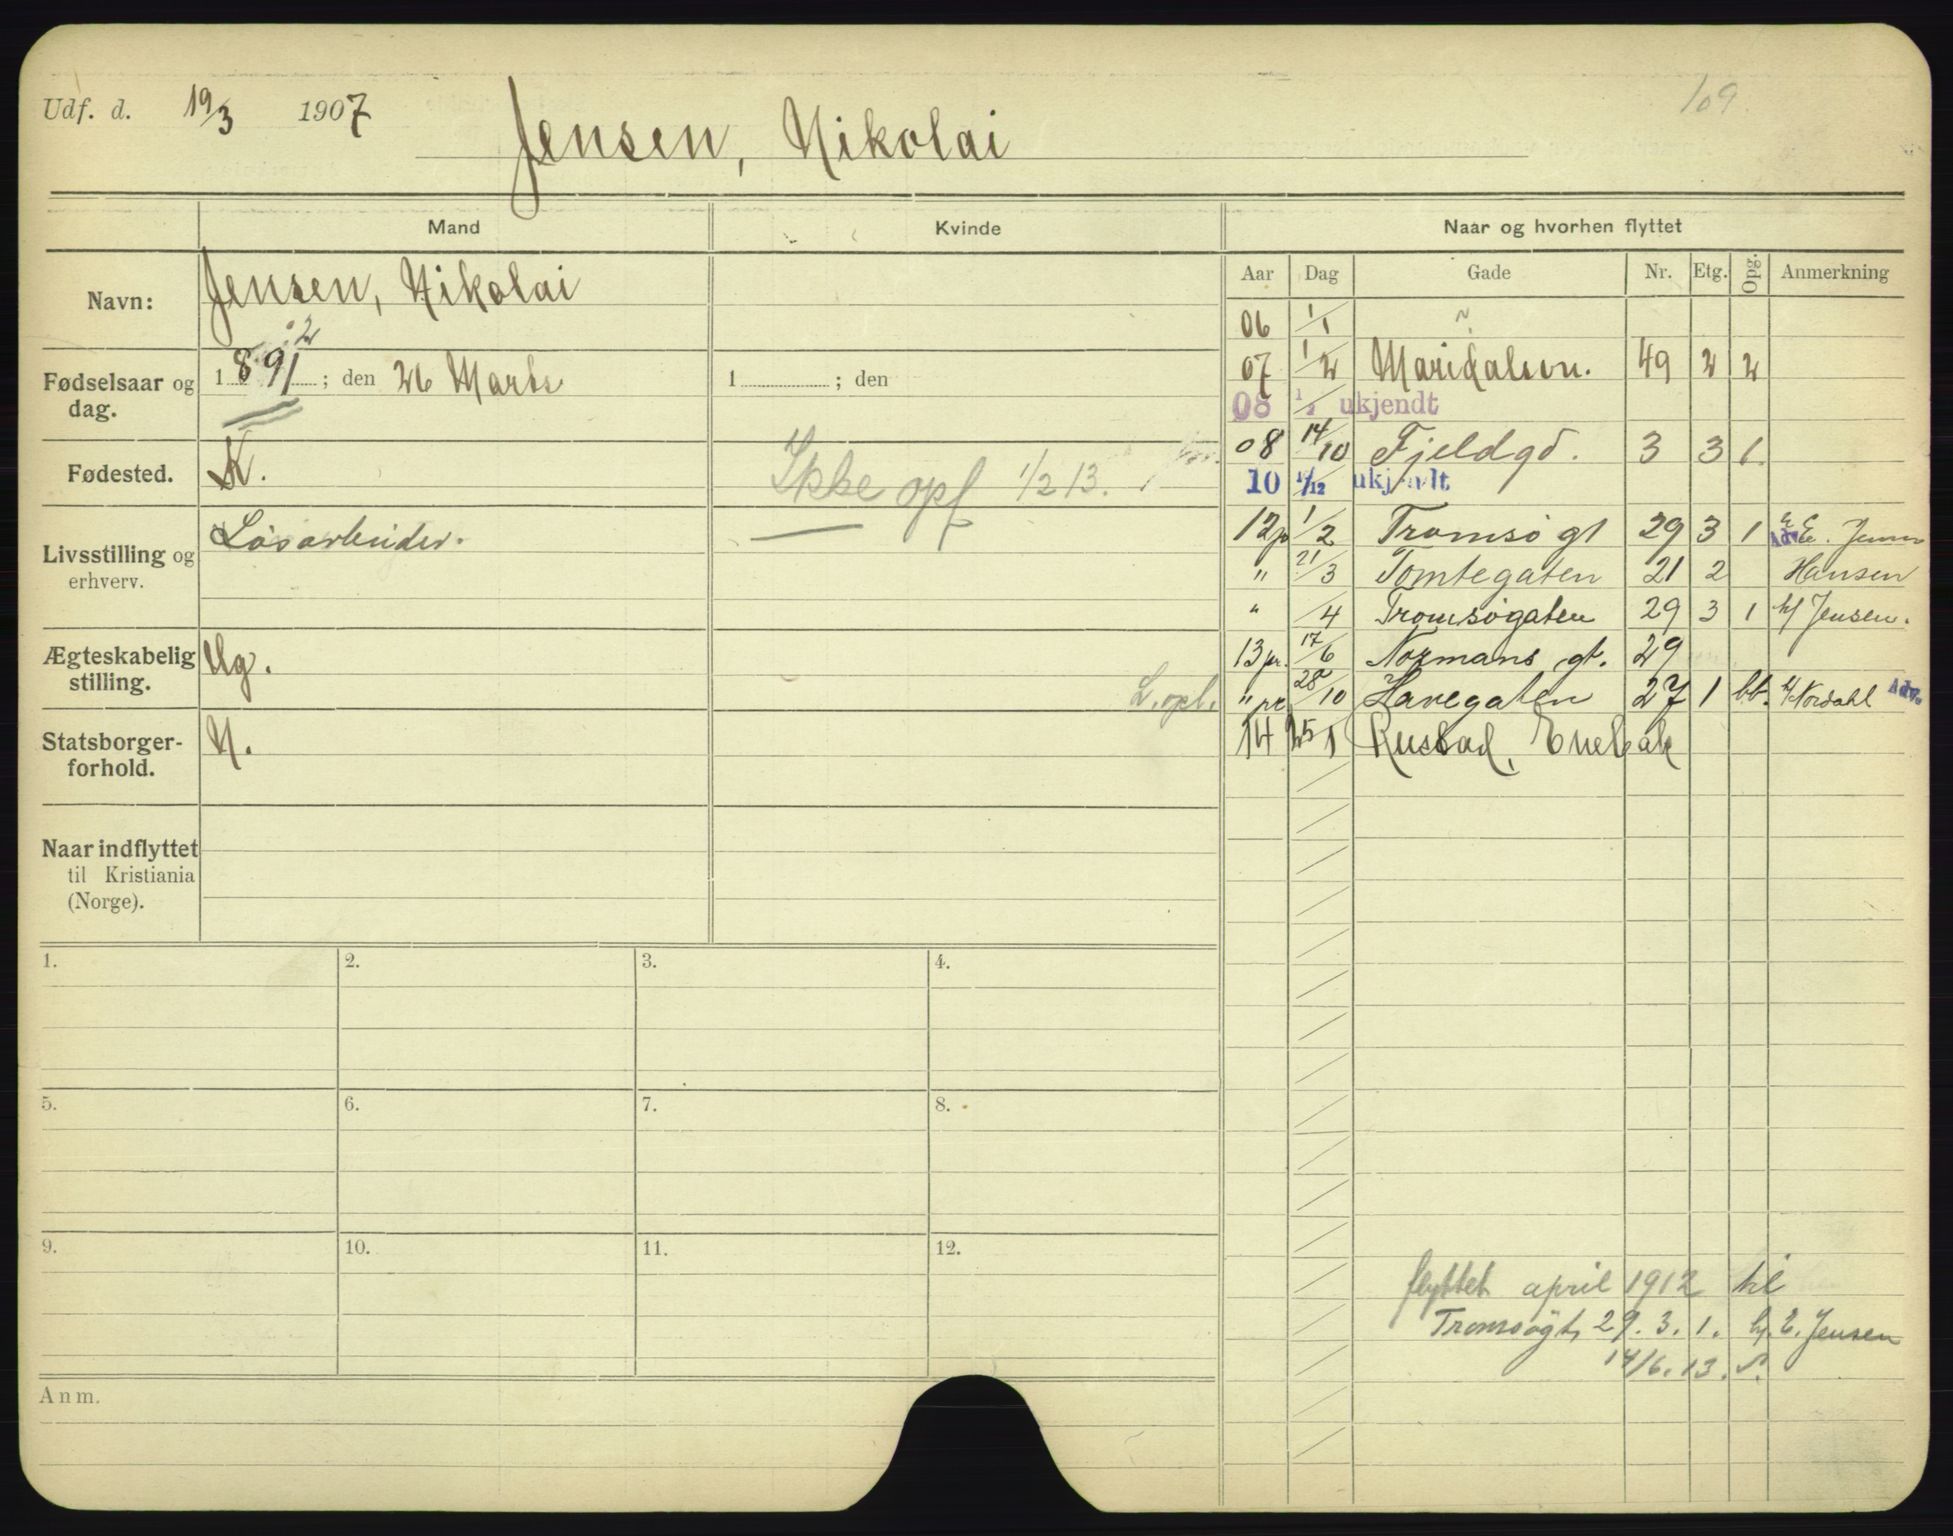 Udf. d. 19/3 1907 Jensen, Nikolai 109
Mand Kvinde Naar og hvorhen flyttet
Aar Dag Gade Nr. Etg. Opg. Anmerkning
Navn: Jensen, Nikolai
Fødselsaar og dag. 1891 2 ; den 26 Marts
1 ; den
Fødested. K.
Ikke opf 1/2 13.
Livsstilling og erhverv. Løsarbeider.
Ægteskabelig stilling. Ug.
L. opl.
Statsborgerforhold. N.
Naar indflyttet
til Kristiania
(Norge).
06 1/1
07 1/2 Maridalsvn. 49 2 2
08 1/2 ukjendt
08 14/10 Fjeldgd. 3 3 1.
10 1/12 ukjendt
12p 1/2 Tromsø gt 29 3 1 Adv. E. Jensen
" 21/3 Tomtegaten 21 2 Hansen
" /4 Tromsøgaten 29 3 1 h/ Jensen.
13 pr. 17/6 Normans gt. 29
" pr 28/10 Havegaten 27 1 bb. h/ Nordahl Adv.
14 25 1 Rustad, Enebak
1. 2. 3. 4.
5. 6. 7. 8.
9. 10. 11. 12.
flyttet april 1912 til
Tromsøgt, 29. 3. 1. h. E. Jensen
14/6. 13.
Anm.